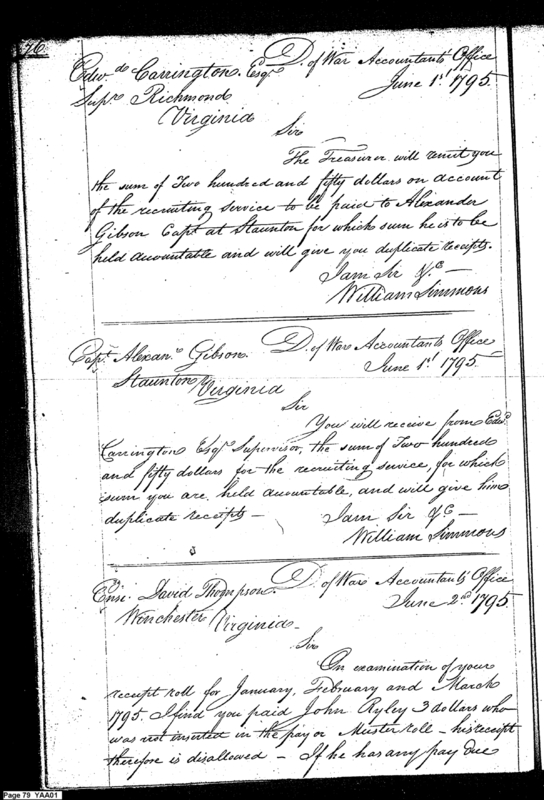 76
Edwd. Carrington. Esqr. D. of War Accountants' Office
Supr. Richmond June 1st 1795.
Virginia
Sir
The Treasurer will remit you
the sum of Two hundred and fifty dollars on account
of the recruiting service to be paid to Alexander
Gibson Capt at Staunton for which sum he is to be
held accountable and will give you duplicate receipts.
I am Sir &c —
William Simmons
Capt. Alexanr. Gibson. D. of War Accountants Office
Staunton Virginia June 1st 1795.
Sir
You will receive from Edwd.
Carrington Esqr. Supervisor, the sum of Two hundred
and fifty dollars for the recruiting service, for which
sum you are held accountable, and will give him
duplicate receipts — I am Sir &c —
William Simmons
Ensn. David Thompson. D. of War Accountants' Office
Winchester Virginia. June 2nd 1795.
Sir
On examination of your
receipt roll for January, February and March
1795. I find you paid John Ryley 3 dollars who
was not inserted in the pay or Muster roll — his receipt
therefore is disallowed — If he has any pay due
Page 79 YAA01